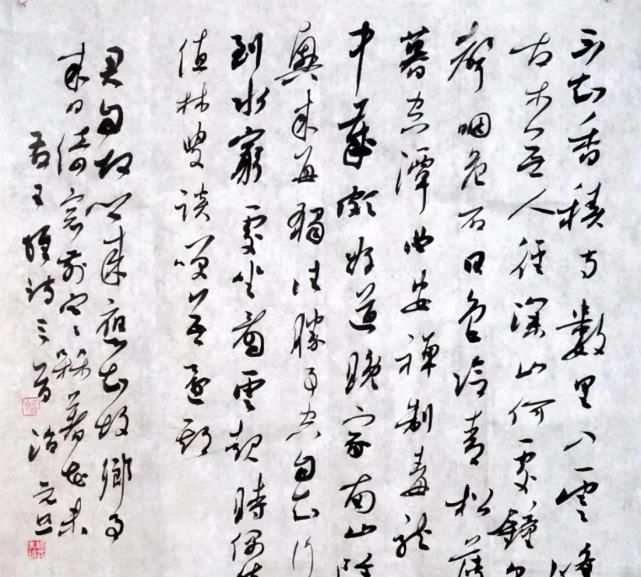 不知香積寺數里入雲峰
古木無人徑深山何處鐘泉
聲咽危石日色冷青松薄
暮空潭曲安禪制毒龍
中歲頗好道晚家南山陲
興來每獨往勝事空自知行
到水窮處坐看雲起時偶然
值林叟談笑無還期
君自故鄉來應知故鄉事
來日綺窗前寒梅著花未
王維詩三首